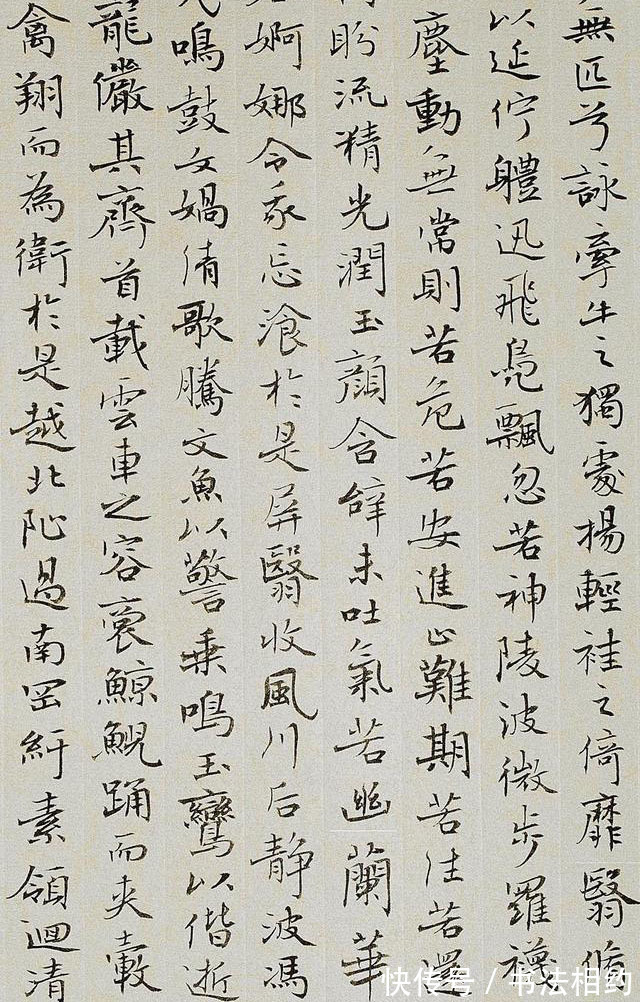 無匹兮詠牽牛之獨處揚輕袿之倚靡翳脩
以延佇體迅飛鳧飄忽若神陵波微步羅襪
塵動無常則若危若安進止難期若往若還
盼流精光潤玉顏含辭未吐氣若幽蘭華
婀娜令我忘飡於是屏翳收風川后静波馮
鳴鼓女媧清歌騰文魚以警乗鳴玉鸞以偕逝
龍儼其齊首載雲車之容裔鯨鯢踊而夾轂
禽翔而為衛於是越北沚過南岡紆素領迴清
快传号 / 书法相约